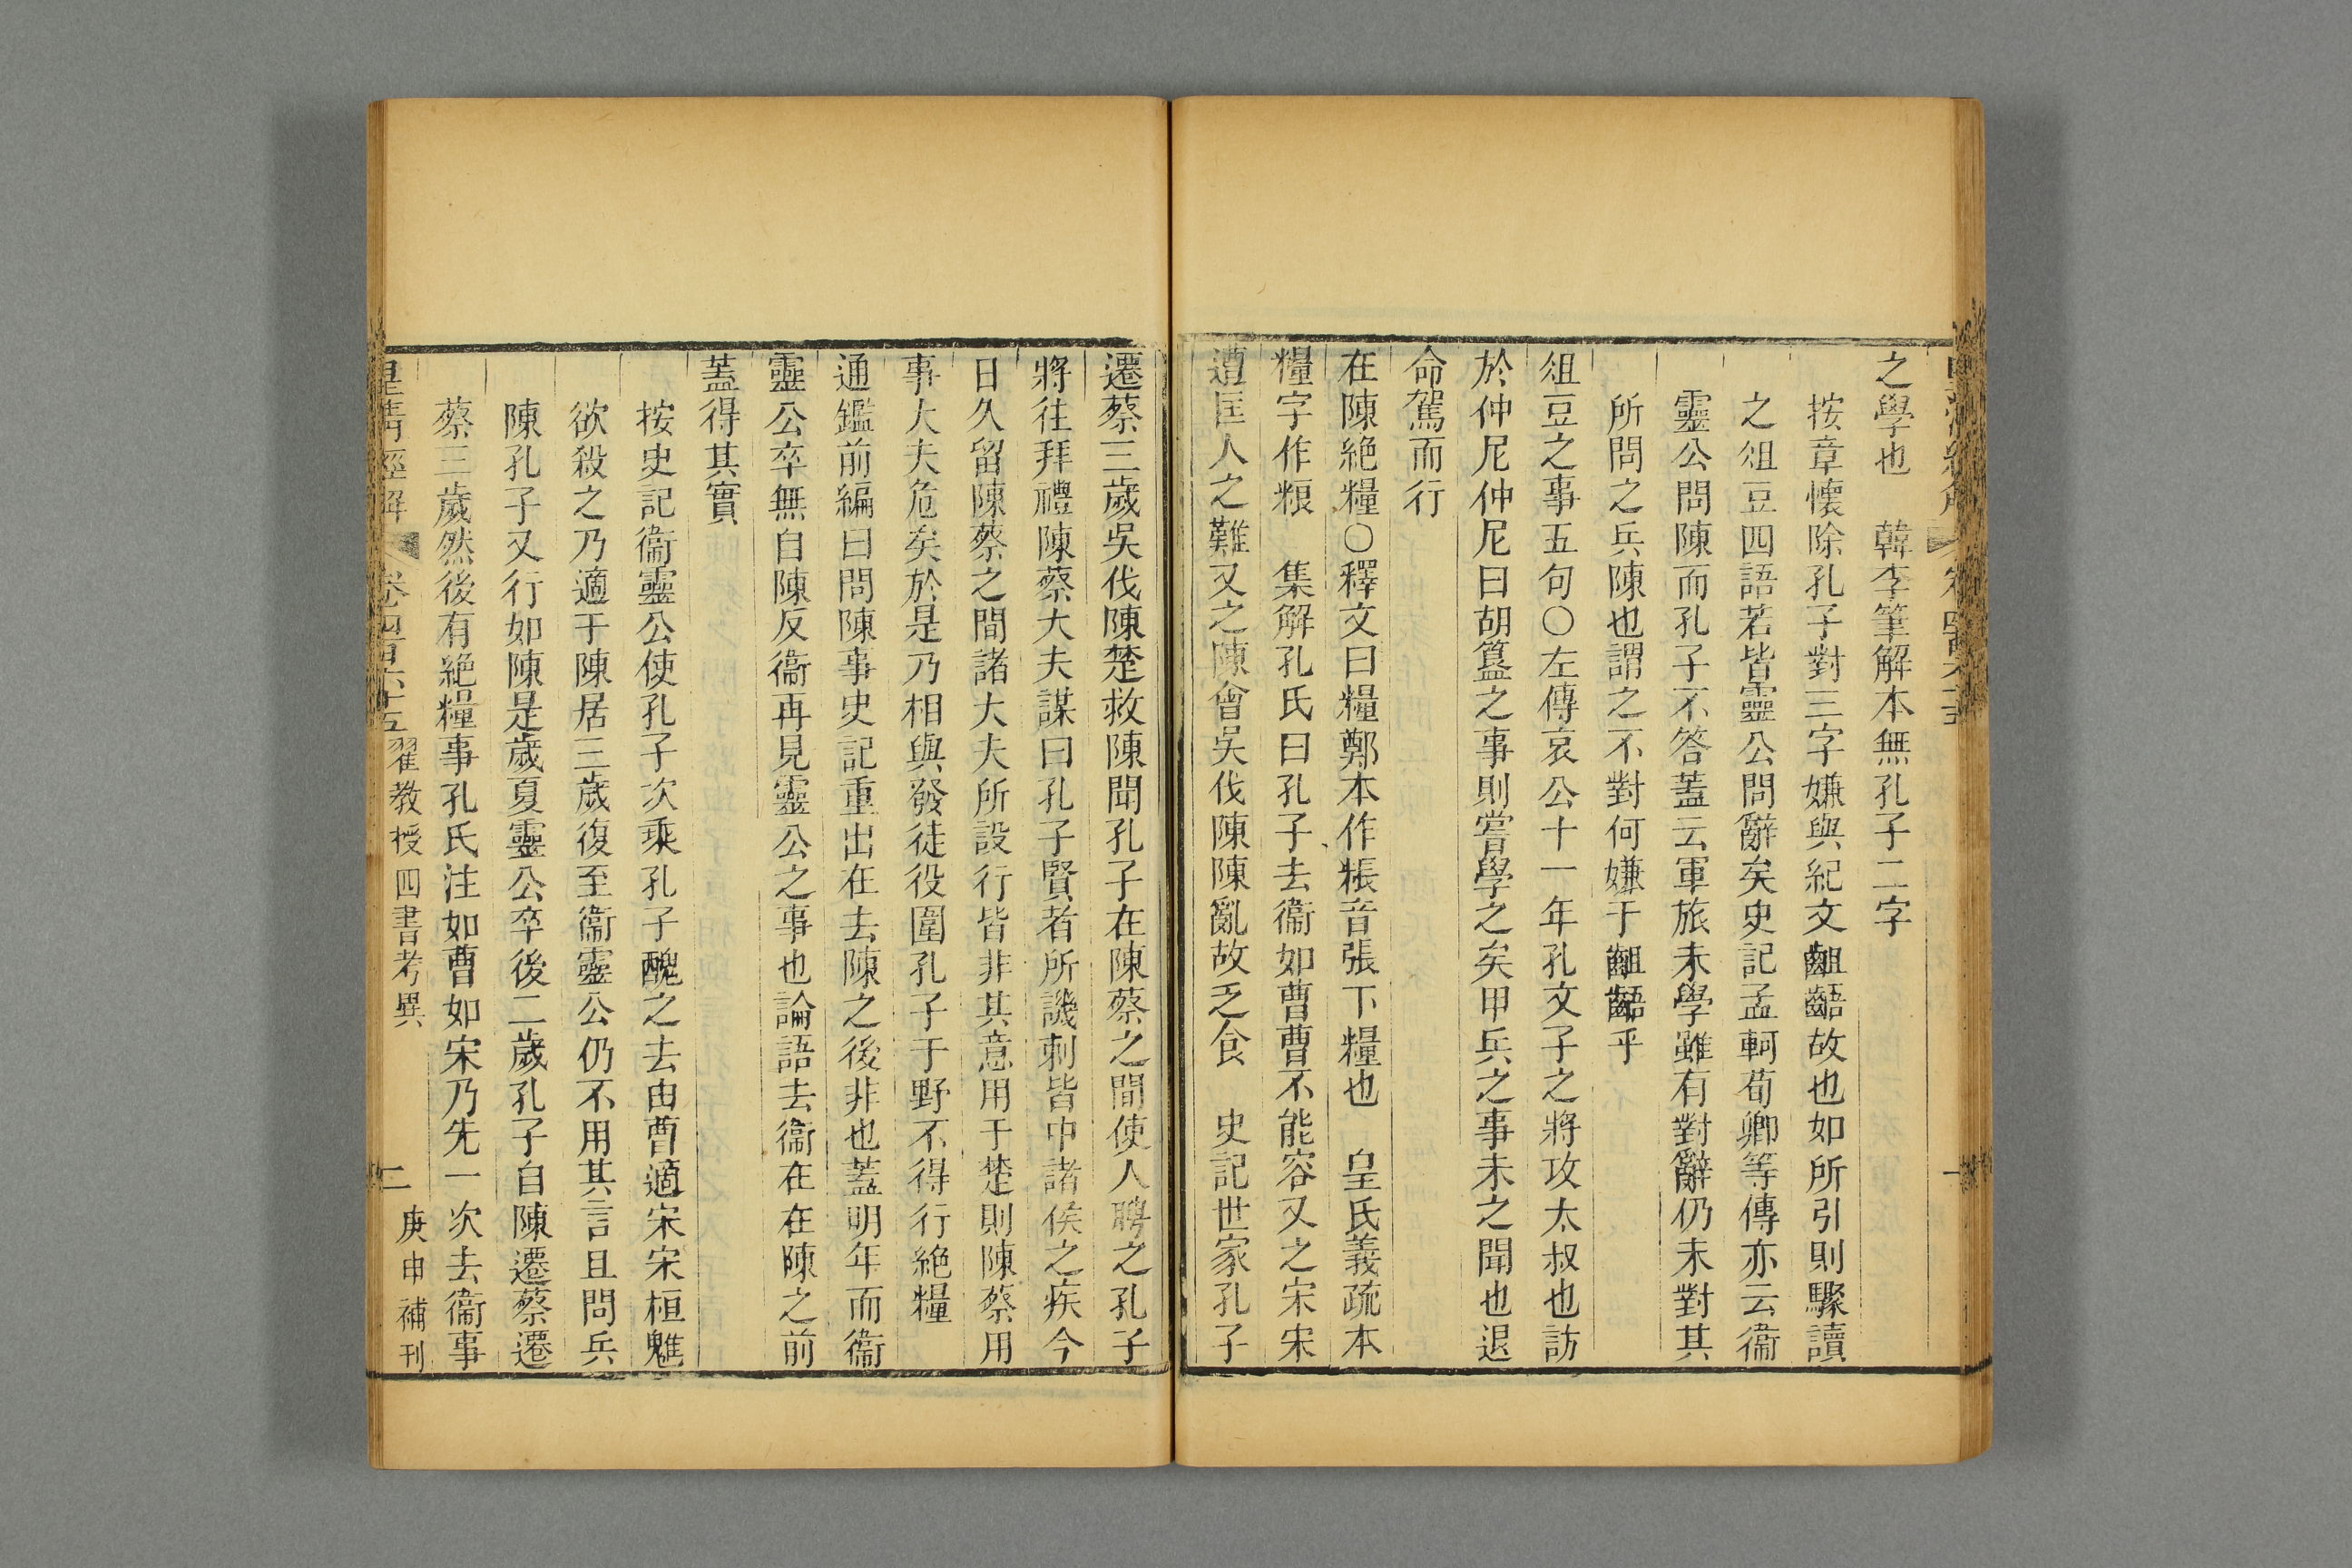 之學也　韓李筆解本無孔子二字
按章懷除孔子對三字嫌與紀文齟齬故也如所引則驟讀
之俎豆四語若皆靈公問辭矣史記孟軻荀卿等傳亦云衞
靈公問陳而孔子不答蓋云軍旅未學雖有對辭仍未對其
所問之兵陳也謂之不對何嫌于齟齬乎
俎豆之事五句○左傳哀公十一年孔文子之將攻太叔也訪
於仲尼仲尼曰胡簋之事則嘗學之矣甲兵之事未之聞也退
命駕而行
在陳絶糧○釋文曰糧鄭本作粻音張下糧也　皇氏義疏本
糧字作粮　集解孔氏曰孔子去衞如曹曹不能容又之宋宋
遭匡人之難又之陳會吳伐陳陳亂故乏食　史記世家孔子
遷蔡三歲吳伐陳楚救陳聞孔子在陳蔡之間使人聘之孔子
將往拜禮陳蔡大夫謀曰孔子賢者所譏刺皆中諸侯之疾今
日久留陳蔡之間諸大夫所設行皆非其意用于楚則陳蔡用
事大夫危矣於是乃相與發徒役圍孔子于野不得行絶糧
通鑑前編曰問陳事史記重出在去陳之後非也蓋明年而衞
靈公卒無自陳反衞再見靈公之事也論語去衞在在陳之前
蓋得其實
按史記衞靈公使孔子次乘孔子醜之去由曹適宋宋桓魋
欲殺之乃適于陳居三歲復至衞靈公仍不用其言且問兵
陳孔子又行如陳是歲夏靈公卒後二歲孔子自陳遷蔡遷
蔡三歲然後有絶糧事孔氏注如曹如宋乃先一次去衞事
皇清經解　卷四百六十五　翟教授四書考異　二　庚申補刊